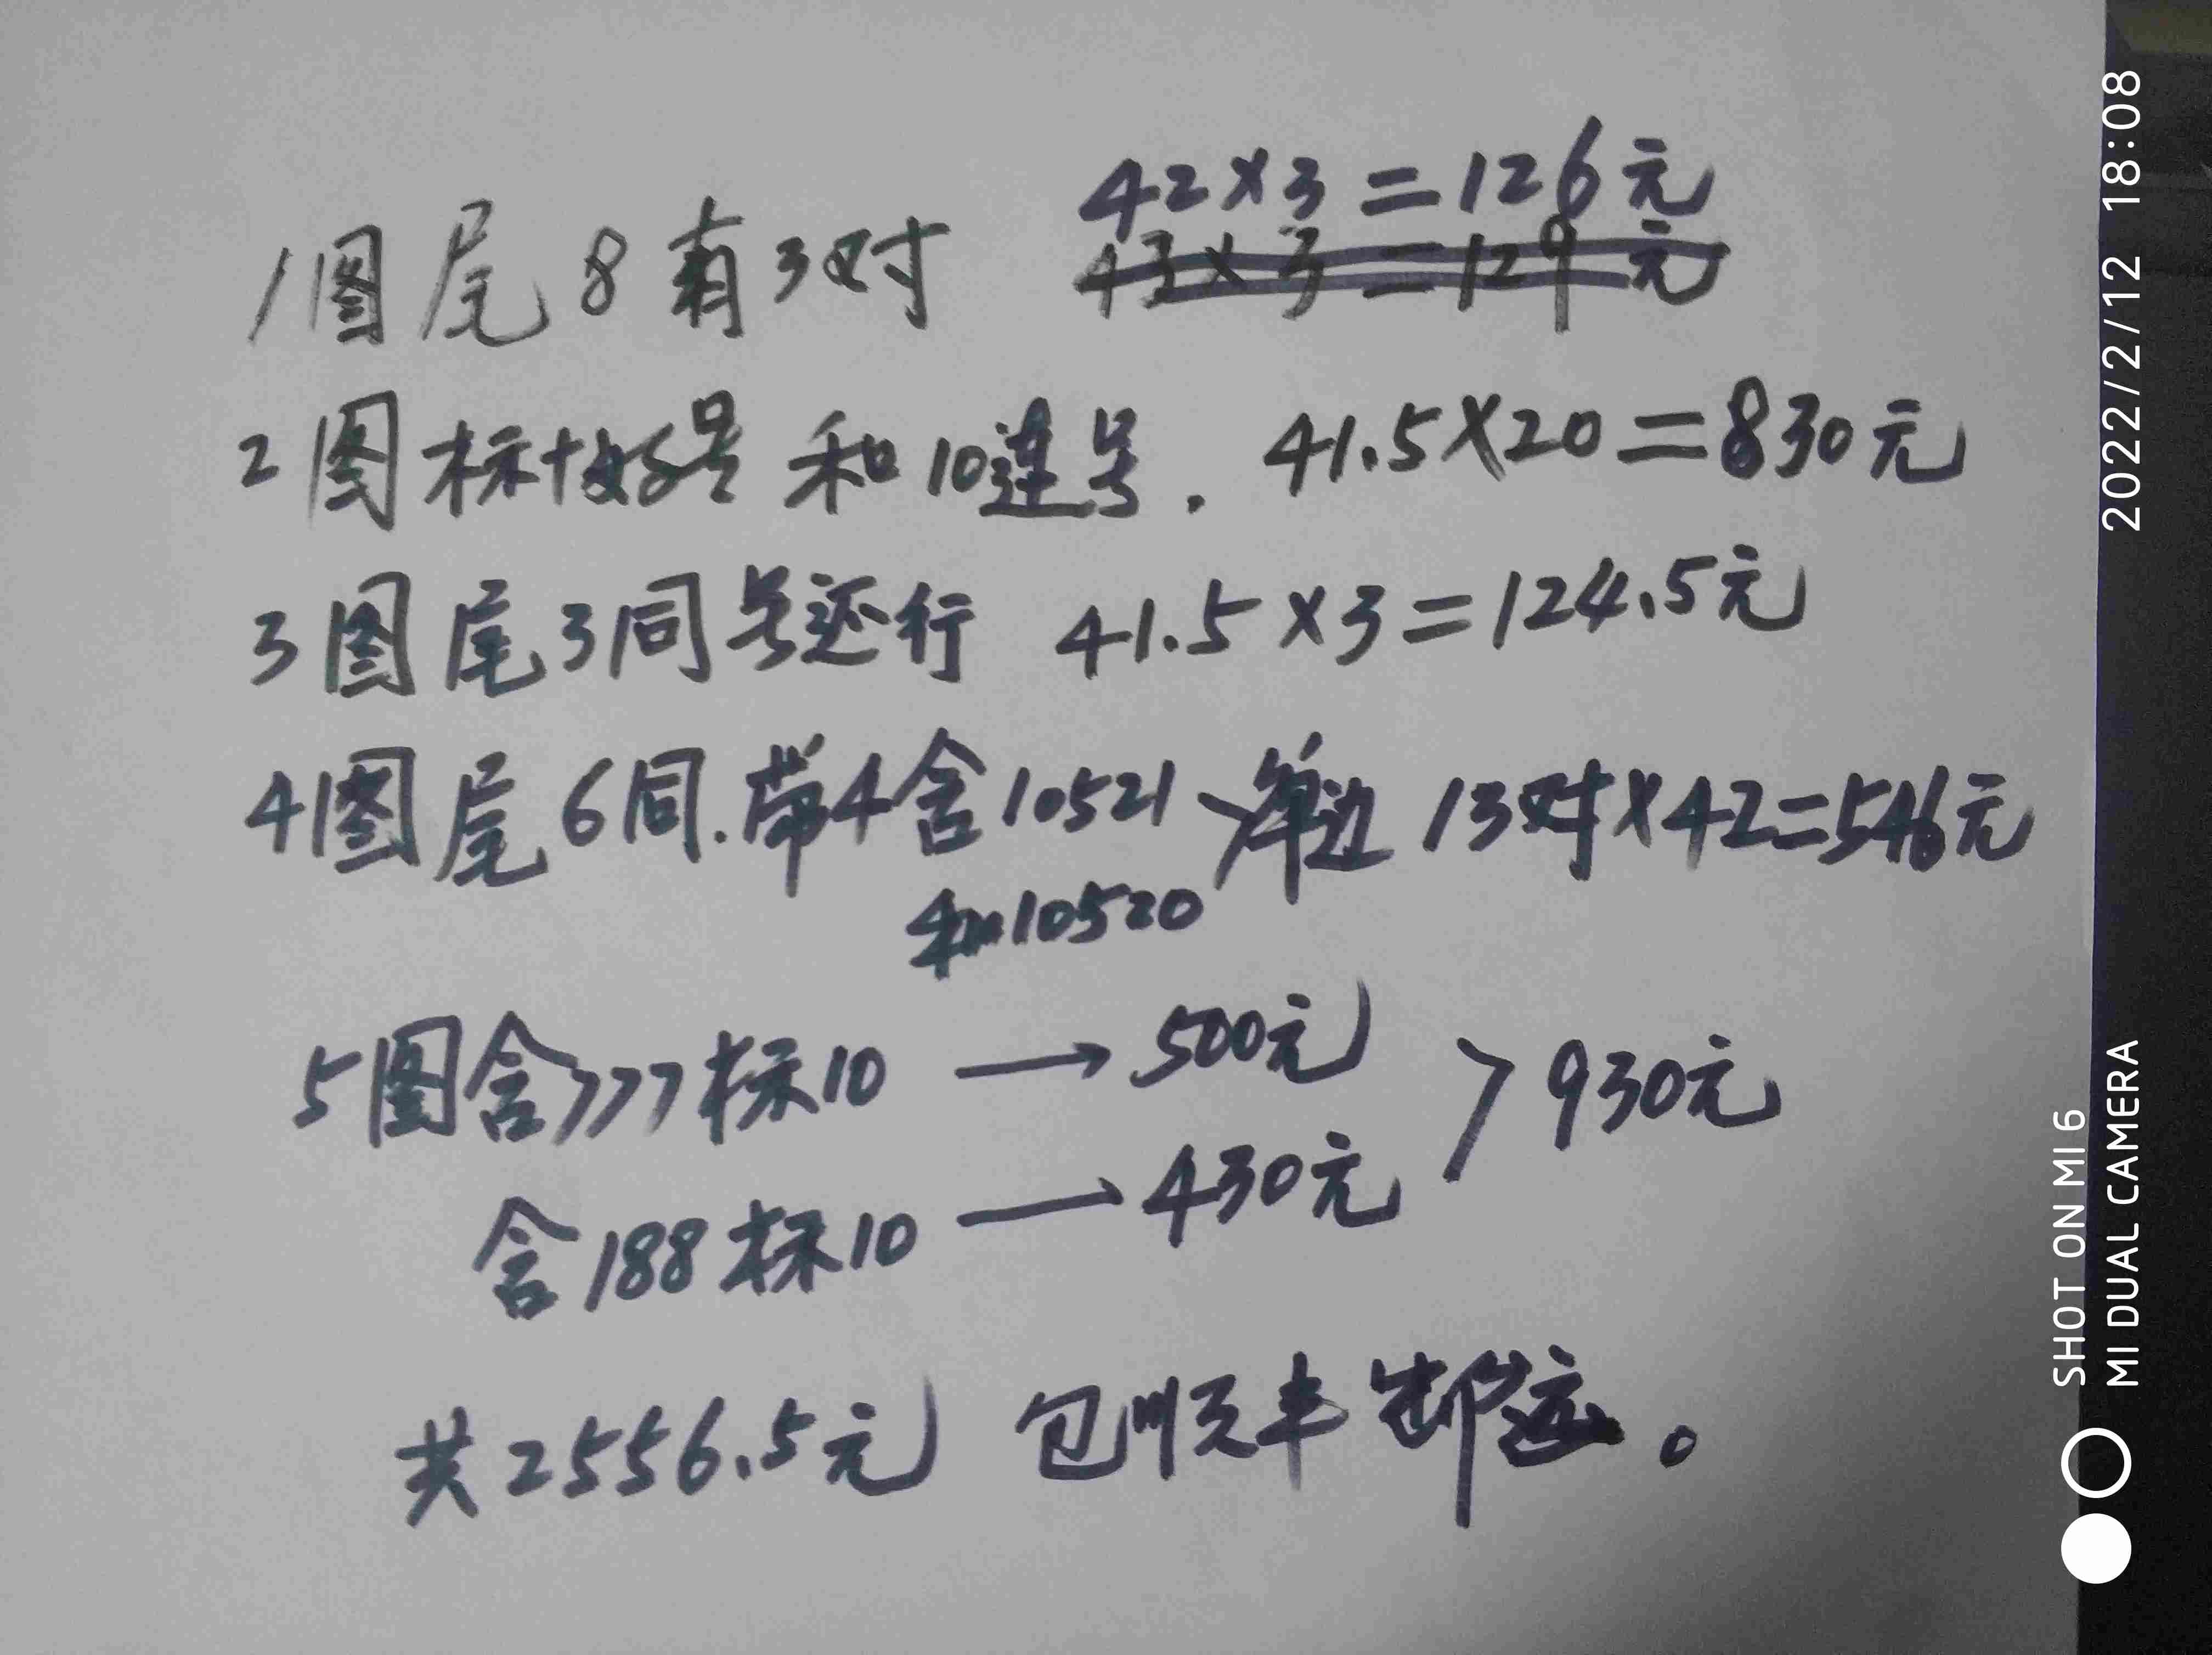 42×3=126元
1图尾8有3对 43×3=129元
2图标十好号和10连号. 41.5×20=830元
3图尾3同号还行 41.5×3=124.5元
4图尾6同.带4含10521、单边 13对×42=546元
和10520
5图含777标10 → 500元
> 930元
含188标10 → 430元
共2556.5元 包顺丰邮运。
2022/2/12 18:08
SHOT ON MI 6
MI DUAL CAMERA